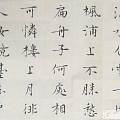 楓浦上不勝愁
扁舟子何處相
可憐樓上月徘
人妝鏡臺